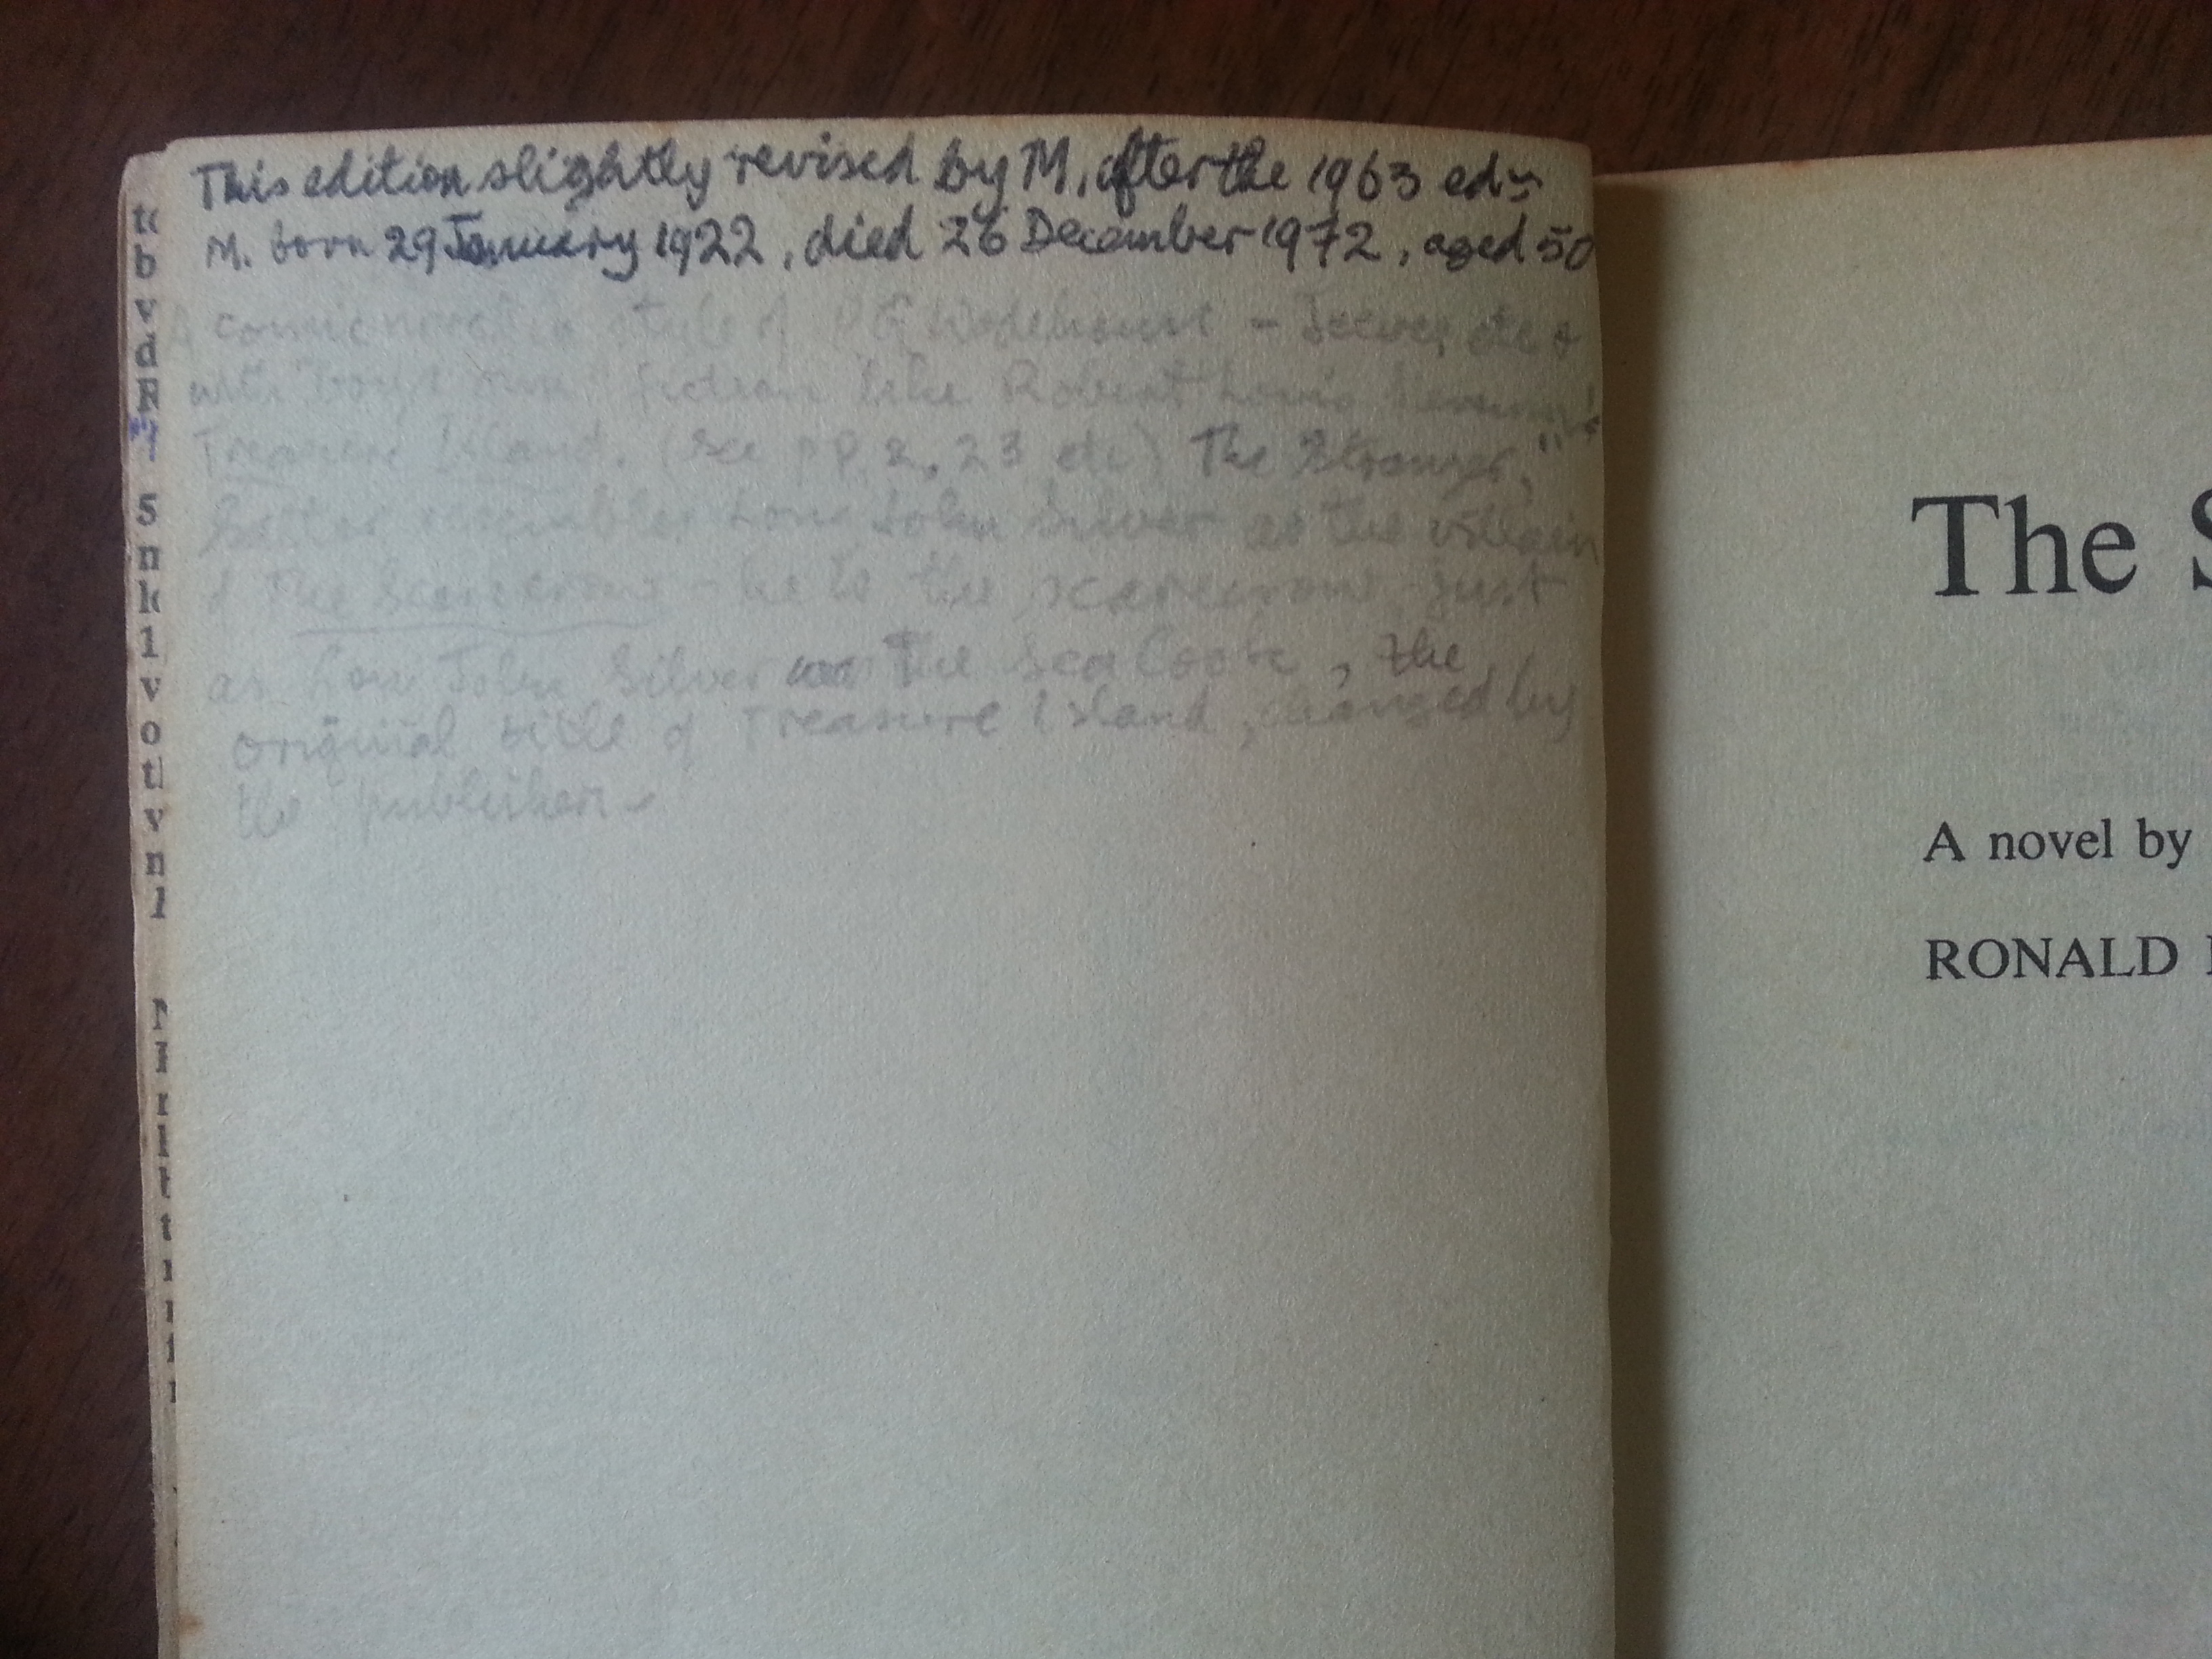 This edition slightly revised by M. after the 1963 edn
M. born 29 January 1922, died 26 December 1972, aged 50
A comic novel in style of PG Wodehouse - Jeeves, etc &
with "boy's own" fiction like Robert Louis Stevenson's
Treasure Island. (see pp 2, 23 etc) The Stranger,
Salter resembles Long John Silver as the villain
of The Scarecrow - he is the scarecrow just
as Long John Silver was The Sea Cook, the
original title of Treasure Island, changed by
the publisher
The
A novel by
RONALD